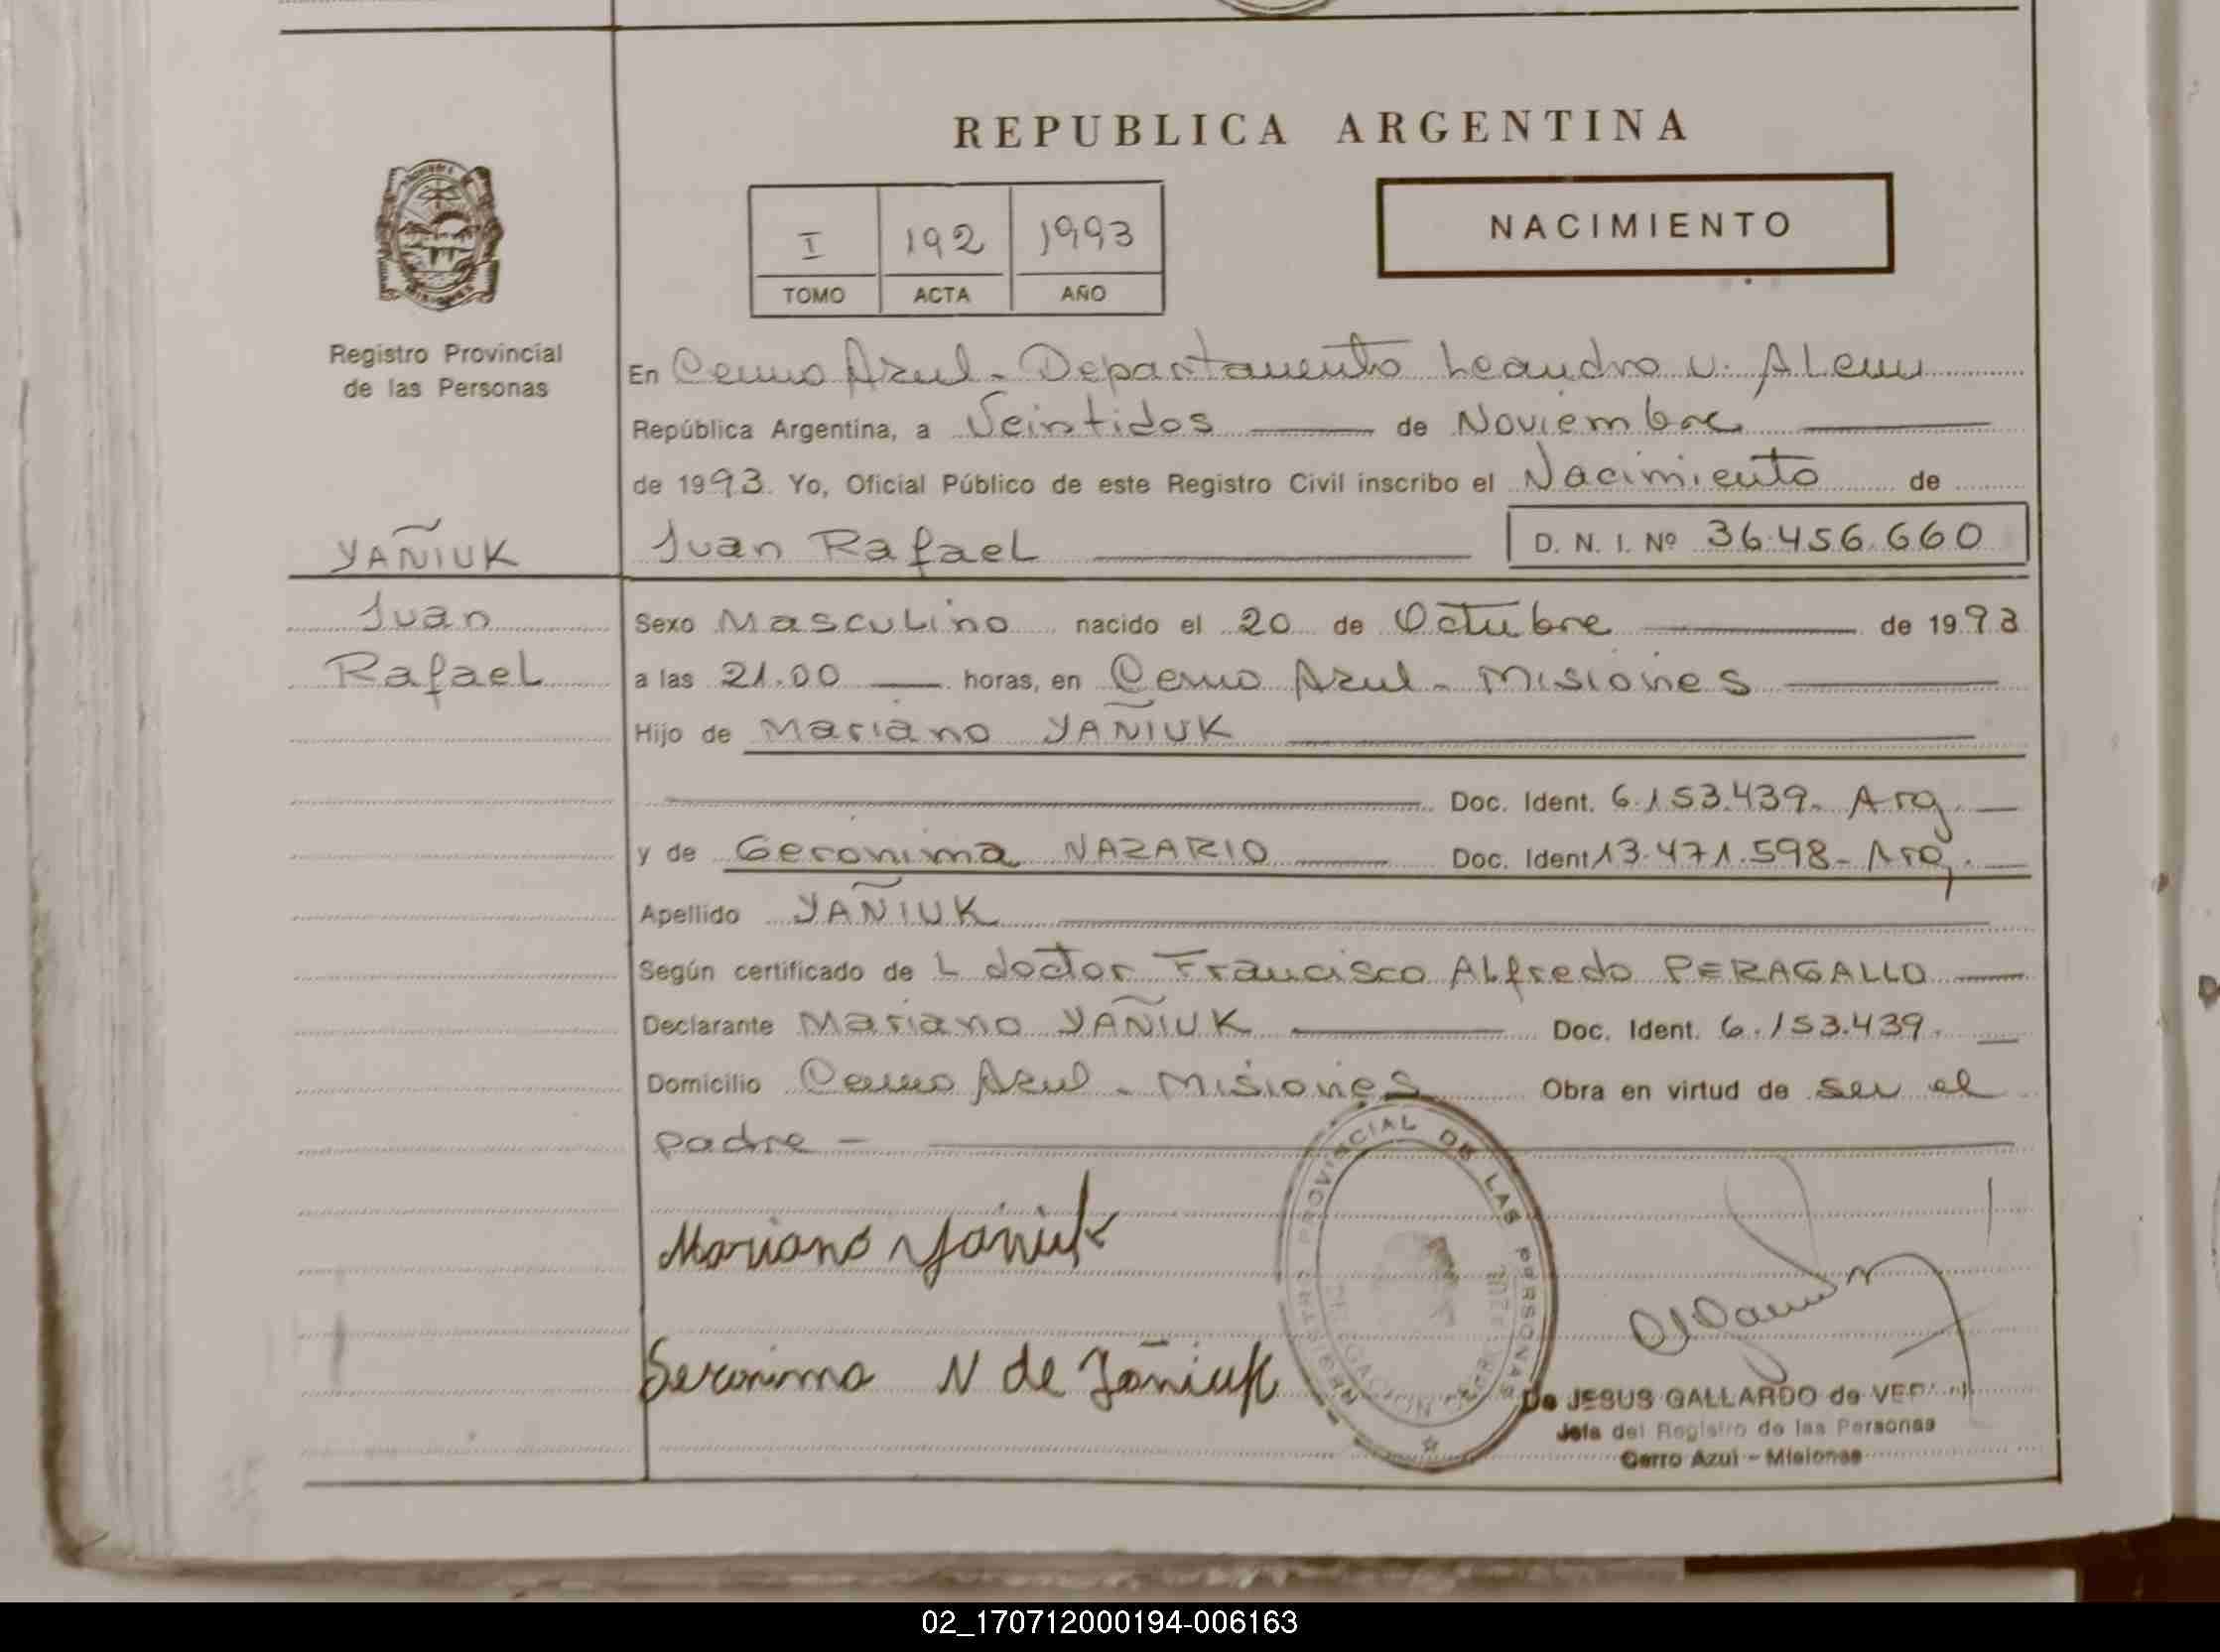 REPUBLICA ARGENTINA
NACIMIENTO
I 192 1993
TOMO ACTA AÑO
Registro Provincial
de las Personas
En Cerro Azul - Departamento Leandro N. ALem
República Argentina, a Veintidos de Noviembre
de 1993. Yo, Oficial Público de este Registro Civil inscribo el Nacimiento de
YAÑIUK
Juan RafaeL D. N. I. Nº 36.456.660
Juan
RafaeL
Sexo MascuLino nacido el 20 de Octubre de 1993
a las 21.00 horas, en Cerro Azul - Misiones
Hijo de Mariano YAÑIUK
Doc. Ident. 6.153.439. Arg.
y de Geronima NAZARIO Doc. Ident 13.471.598 - Arg.
Apellido YAÑIUK
Según certificado de L doctor Francisco ALfredo PERAGALLO
Declarante Mariano YAÑIUK Doc. Ident. 6.153.439.
Domicilio Cerro Azul - Misiones Obra en virtud de ser el
padre -
Mariano Yañiuk
Geronima N de Yañiuk
REGISTRO PROVINCIAL DE LAS PERSONAS
DELEGACION
JESUS GALLARDO de
Jefa del Registro de las Personas
Cerro Azul - Misiones
02_170712000194-006163